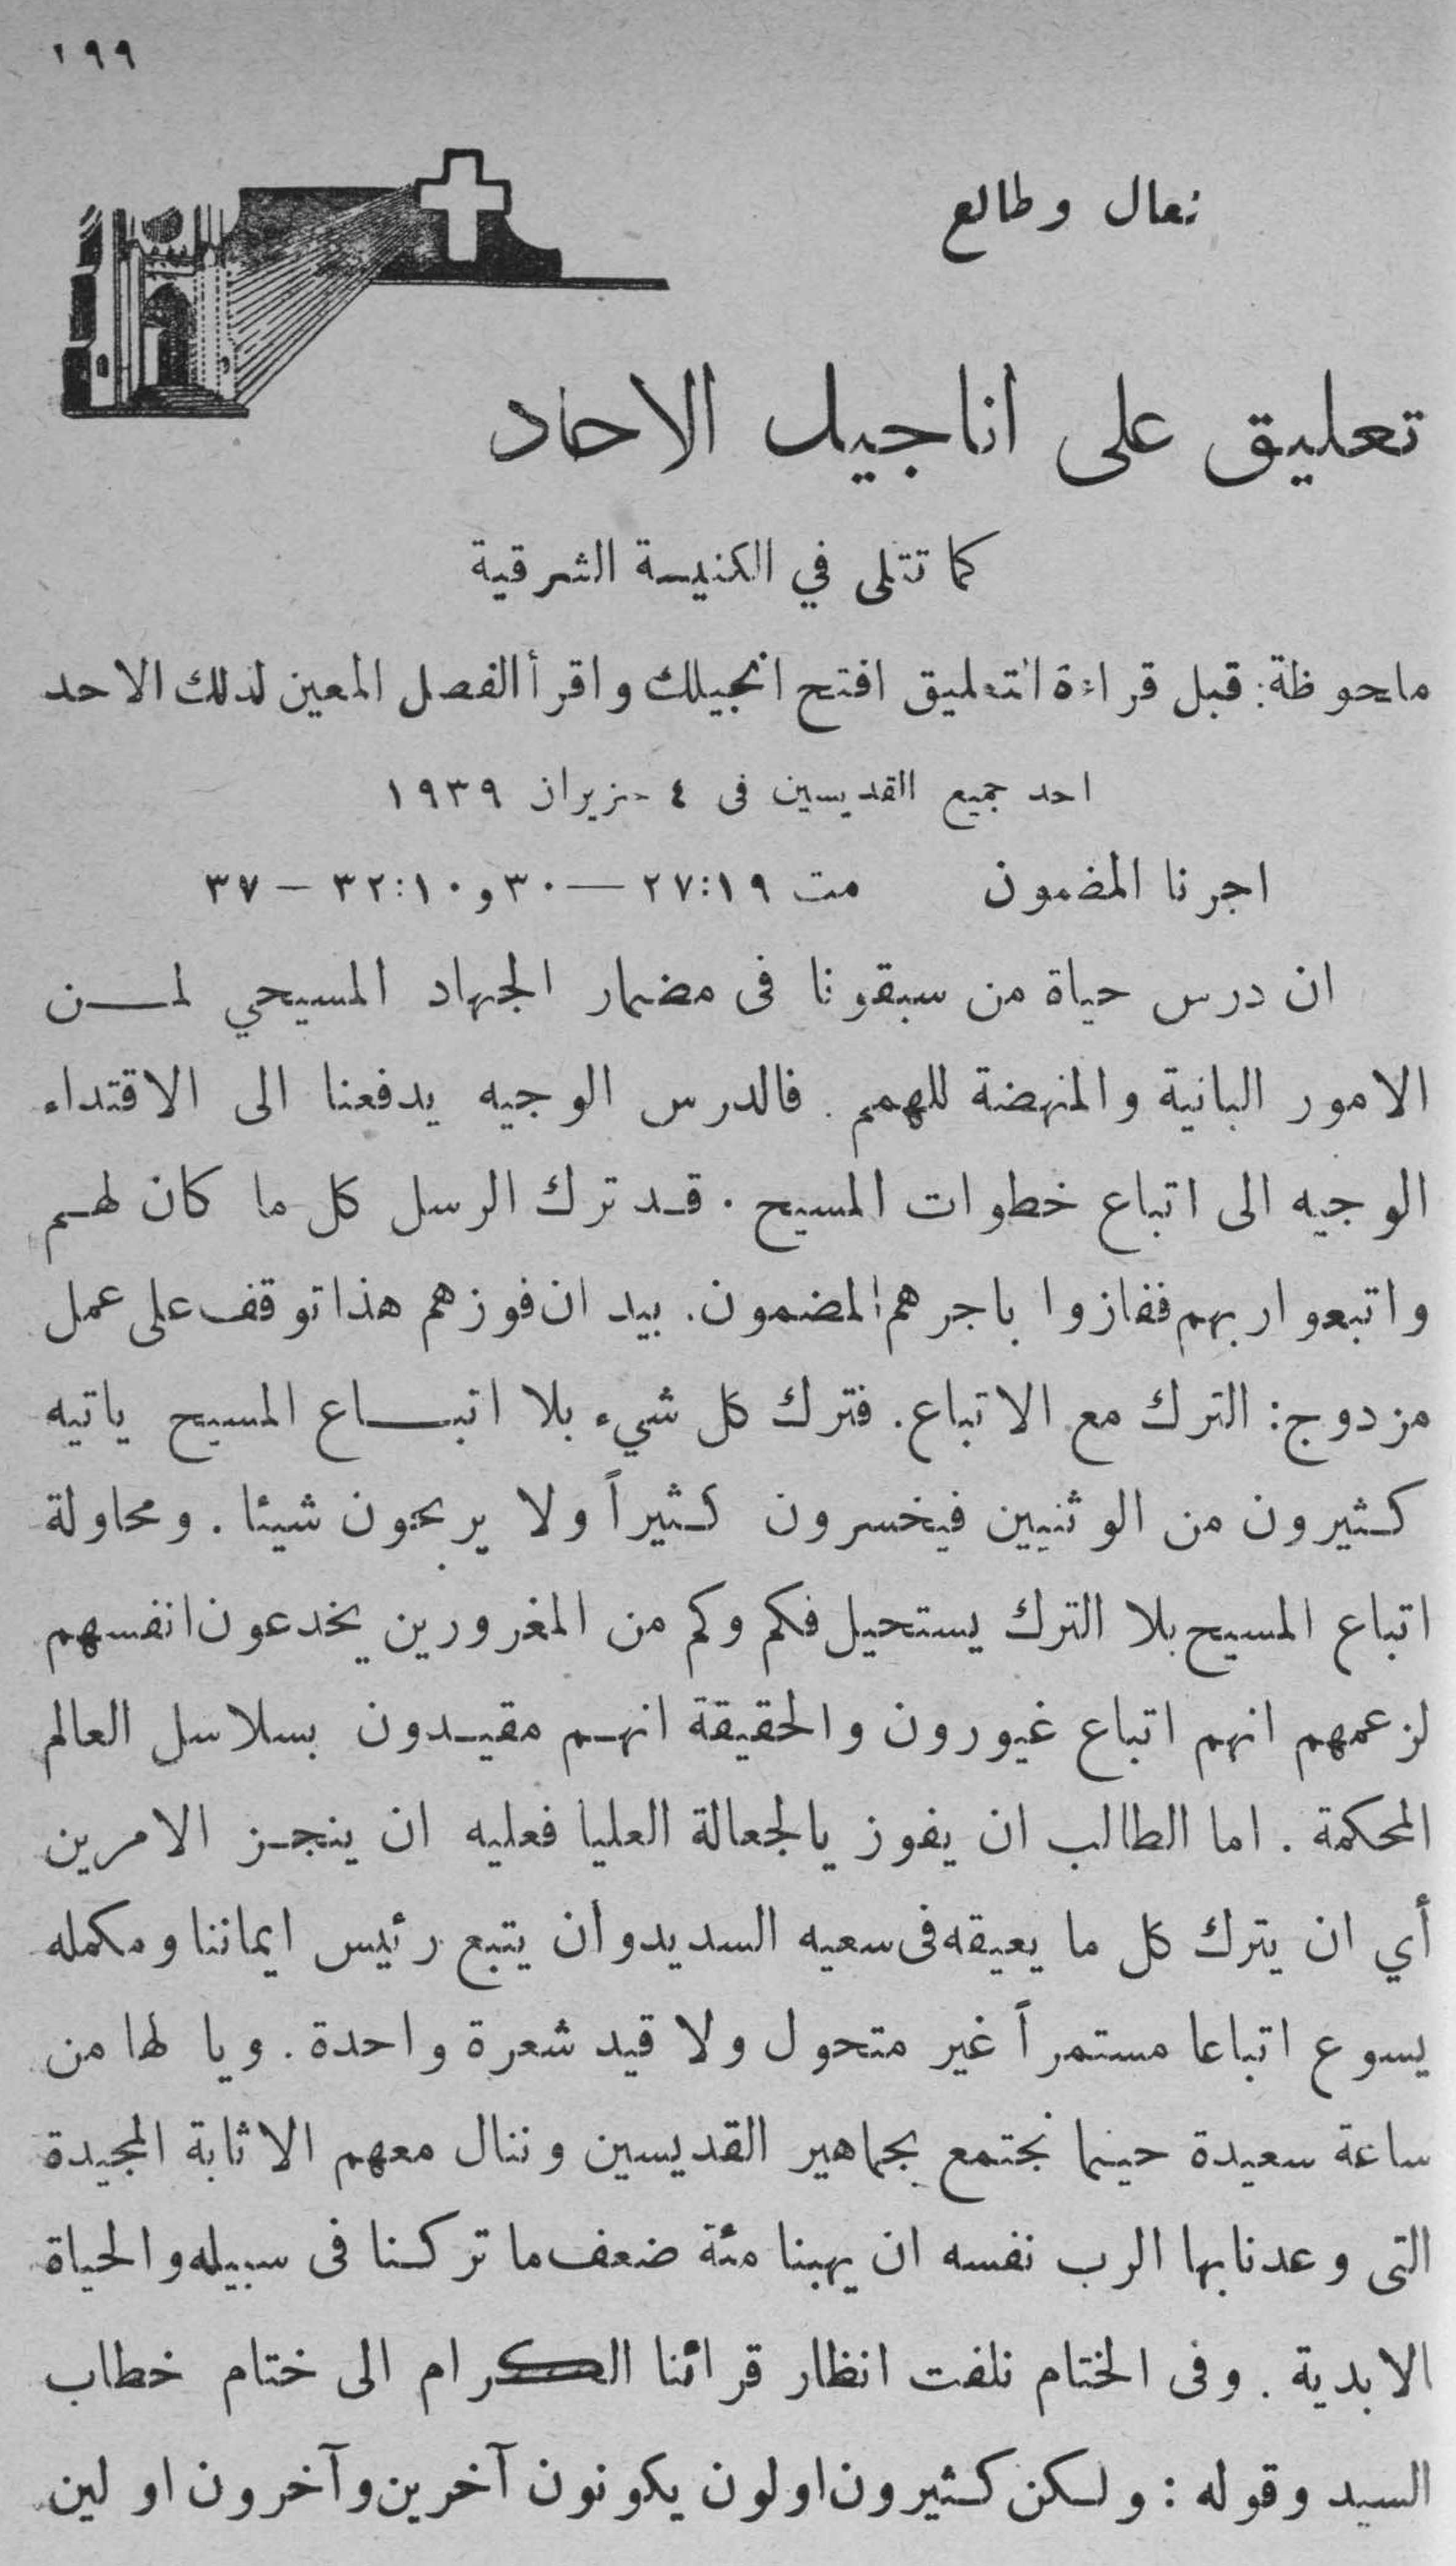 ١٩٩
تعال وطالع
تعليق على اناجيل الاحاد
كما تتلى في الكنيسة الشرقية
ملحوظة: قبل قراءة التعليق افتح انجيلك واقرأ الفصل المعين لذلك الاحد
احد جميع القديسين فى ٤ حزيران ١٩٣٩
اجرنا المضمون مت ١٩:٢٧ — ٣٠ و ١٠:٣٢ — ٣٧
ان درس حياة من سبقونا فى مضمار الجهاد المسيحي لمن
الامور البانية والمنهضة للهمم. فالدرس الوجيه يدفعنا الى الاقتداء
الوجيه الى اتباع خطوات المسيح. قد ترك الرسل كل ما كان لهم
واتبعوا ربهم ففازوا باجرهم المضمون. بيد ان فوزهم هذا توقف على عمل
مزدوج: الترك مع الاتباع. فترك كل شيء بلا اتباع المسيح ياتيه
كثيرون من الوثنيين فيخسرون كثيراً ولا يربحون شيئا. ومحاولة
اتباع المسيح بلا الترك يستحيل فكم وكم من المغرورين يخدعون انفسهم
لزعمهم انهم اتباع غيورون والحقيقة انهم مقيدون بسلاسل العالم
المحكمة. اما الطالب ان يفوز يالجعالة العليا فعليه ان ينجز الامرين
أي ان يترك كل ما يعيقه فى سعيه السديد وأن يتبع رئيس ايماننا ومكمله
يسوع اتباعا مستمراً غير متحول ولا قيد شعرة واحدة. ويا لها من
ساعة سعيدة حينما نجتمع بجماهير القديسين وننال معهم الاثابة المجيدة
التى وعدنا بها الرب نفسه ان يهبنا مئة ضعف ما تركنا فى سبيله والحياة
الابدية. وفى الختام نلفت انظار قرائنا الكرام الى ختام خطاب
السيد وقوله: ولكن كثيرون اولون يكونون آخرين وآخرون اولين